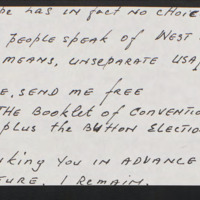 HAS IN FACT NO CHOI
PEOPLE SPEAK OF WEST
MEANS, UNSEPARATE USA
E, SEND ME FREE
THE BOOKLET OF CONVENTIO
plus the BUTTON ELECTIO
NKING YOU IN ADVANCE
TURE, I REMAIN.